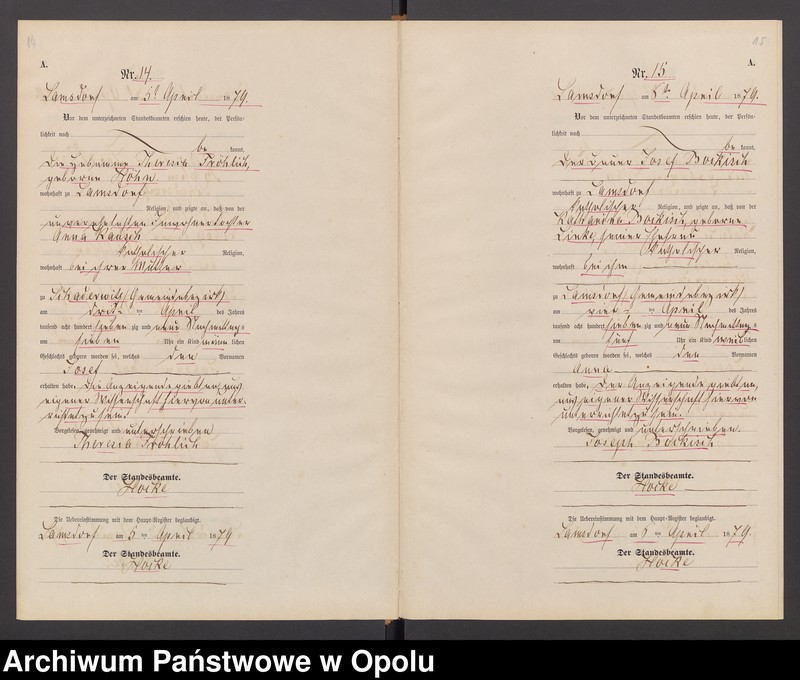 14
A.
Nr. 14.
Lamsdorf am 5t April 1879.
Vor dem unterzeichneten Standesbeamten erschien heute, der Persön-
lichkeit nach
be kannt,
die Hebamme Theresia Fröhlich,
geborne Höhn
wohnhaft zu Lamsdorf
Religion, und zeigte an, daß von der
unverehelichten Inwohnertochter
Anna
katholischer Religion,
wohnhaft bei ihrer Mutter
zu Schaderwitz Gemeindebezirk
am drit ten April des Jahres
tausend acht hundert sieben zig und neun Nachmittags
um sieben Uhr ein Kind männ lichen
Geschlechts geboren worden sei, welches den Vornamen
Josef
erhalten habe. Die Anzeigende giebt an, aus
eigener Wissenschaft hiervon unter-
richtet zu sein.
Vorgelesen, genehmigt und unterschrieben
Theresia Fröhlich
Der Standesbeamte.
Hocke
Die Uebereinstimmung mit dem Haupt-Register beglaubigt.
Lamsdorf am 5 ten April 1879
Der Standesbeamte.
Hocke
15
A.
Nr. 15
Lamsdorf am April 1879.
Vor dem unterzeichneten Standesbeamten erschien heute, der Persön-
lichkeit nach
be kannt,
der Josef Bockisch
wohnhaft zu Lamsdorf
katholischer Religion, und zeigte an, daß von der
Katharina Bockisch, geborne
Linke, seiner Ehefrau
katholischer Religion,
wohnhaft bei ihm
zu Lamsdorf Gemeindebezirk
am vier ten April des Jahres
tausend acht hundert sieben zig und neun Nachmittags
um fünf Uhr ein Kind weib lichen
Geschlechts geboren worden sei, welches den Vornamen
Anna
erhalten habe. Der Anzeigende giebt an,
aus eigener Wissenschaft hiervon
unterrichtet zu sein.
Vorgelesen, genehmigt und unterschrieben.
Joseph Bockisch
Der Standesbeamte.
Hocke
Die Uebereinstimmung mit dem Haupt-Register beglaubigt.
Lamsdorf am ten April 1879.
Der Standesbeamte.
Hocke
Archiwum Państwowe w Opolu